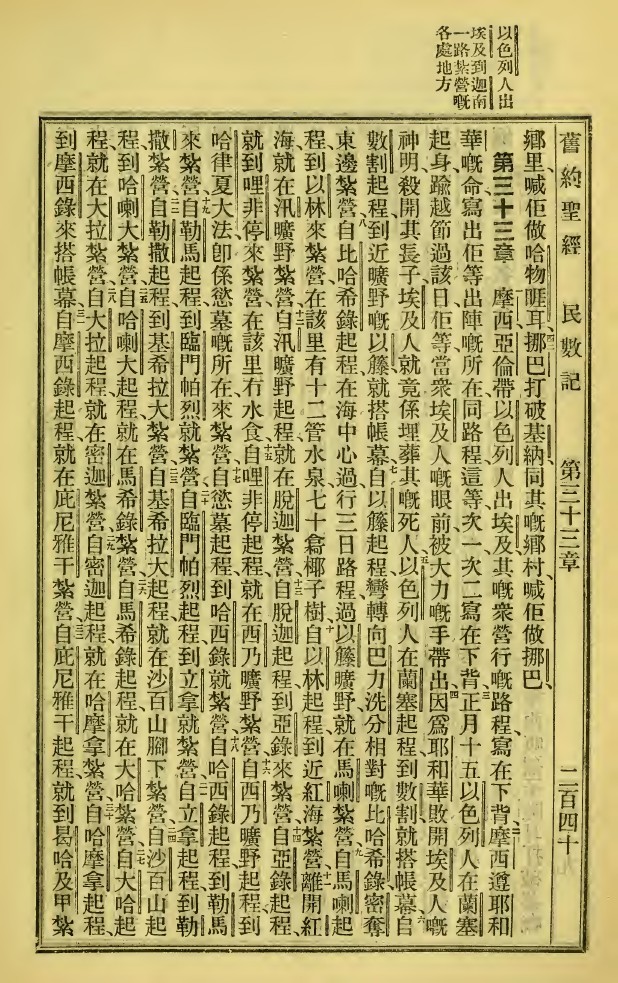 以色列人出
埃及到迦南
一路紮營嘅
各處地方
舊約聖經 民數記 第三十三章 二百四十
鄉里、喊佢做哈物睚耳、四二挪巴打破基納、同其嘅鄉村、喊佢做挪巴、
第三十三章 摩西亞倫帶以色列人出埃及、其嘅衆營行嘅路程、寫在下背、二摩西遵耶和
華嘅命、寫出佢等出陣嘅所在、同路程、這等次一次二寫在下背、三正月十五、以色列人在蘭塞
起身、踰越節過該日、佢等當衆埃及人嘅眼前、被大力嘅手帶出、四因爲耶和華敗開埃及人嘅
神明、殺開其長子、埃及人就竟係埋葬其嘅死人、五以色列人在蘭塞起程、到數割就搭帳幕、六自
數割起程、到近曠野嘅以籐、就搭帳幕、七自以籐起程、彎轉向巴力洗分相對嘅比哈希錄、密奪
東邊紮營、八自比哈希錄起程、在海中心過、行三日路程、過以籐曠野、就在馬喇紮營、九自馬喇起
程、到以林來紮營、在該里有十二管水泉、七十翕椰子樹、十自以林起程、到近紅海紮營、十一離開紅
海、就在汛曠野紮營、十二自汛曠野起程、就在脫迦紮營、十三自脫迦起程、到亞錄來紮營、十四自亞錄起程、
就到哩非停來紮營、在該里冇水食、十五自哩非停起程、就在西乃曠野紮營、十六自西乃曠野起程、到
哈律夏大法、卽係慾墓嘅所在、來紮營、十七自慾墓起程、到哈西錄就紮營、十八自哈西錄起程、到勒馬
來紮營、十九自勒馬起程、到臨門帕烈就紮營、二十自臨門帕烈起程、到立拿就紮營、二一自立拿起程、到勒
撒紮營、二二自勒撒起程、到基希拉大紮營、二三自基希拉大起程、就在沙百山腳下紮營、二四自沙百山起
程、到哈喇大紮營、二五自哈喇大起程、就在馬希錄紮營、二六自馬希錄起程、就在大哈紮營、二七自大哈起
程、就在大拉紮營、二八自大拉起程、就在密迦紮營、二九自密迦起程、就在哈摩拿紮營、三十自哈摩拿起程、
到摩西錄來搭帳幕、三一自摩西錄起程、就在庇尼雅干紮營、三二自庇尼雅干起程、就到曷哈及甲紮